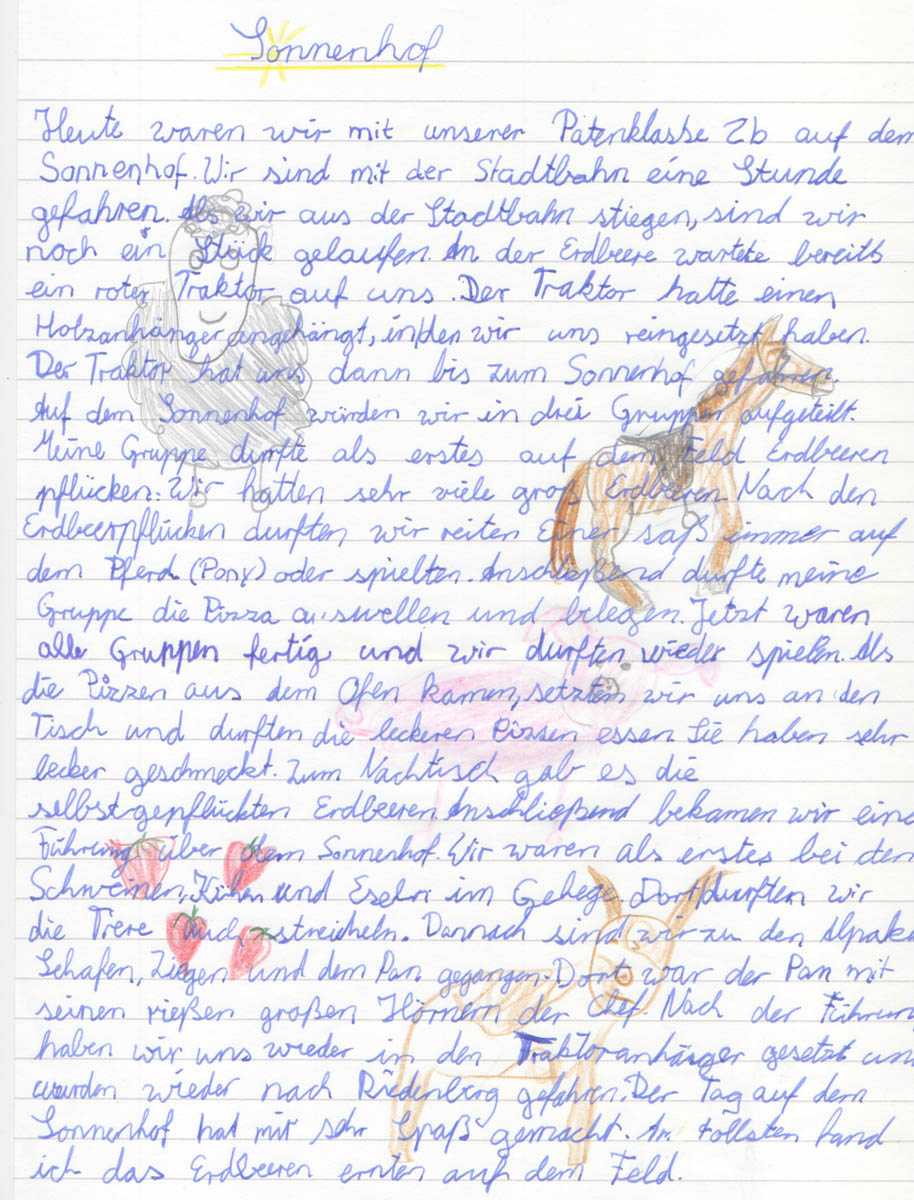 Sonnenhof
Heute waren wir mit unserer Patenklasse 2b auf dem
Sonnenhof. Wir sind mit der Stadtbahn eine Stunde
gefahren. Als wir aus der Stadtbahn stiegen, sind wir
noch ein Stück gelaufen. An der Erdbeere wartete bereits
ein roter Traktor auf uns. Der Traktor hatte einen
Holzanhänger angehängt, in den wir uns reingesetzt haben.
Der Traktor hat uns dann bis zum Sonnenhof gefahren.
Auf dem Sonnenhof wurden wir in drei Gruppen aufgeteilt.
Meine Gruppe durfte als erstes auf dem Feld Erdbeeren
pflücken. Wir hatten sehr viele groß Erdbeeren. Nach den
Erdbeerpflücken durften wir reiten. Einer saß immer auf
dem Pferd (Pony) oder spielten. Anschließend durfte meine
Gruppe die Pizza auswellen und belegen. Jetzt waren
alle Gruppen fertig und wir durften wieder spielen. Als
die Pizzen aus dem Ofen kamen, setzten wir uns an den
Tisch und durften die leckeren Pizzen essen. Sie haben sehr
lecker geschmeckt. Zum Nachtisch gab es die
selbstgepflückten Erdbeeren. Anschließend bekamen wir eine
Führung über dem Sonnenhof. Wir waren als erstes bei den
Schweinen, Kühen und Eseln im Gehege. Dort durften wir
die Tiere auch streicheln. Dannach sind wir zu den Alpaka
Schafen, Ziegen und dem Pan gegangen. Dort war der Pan mit
seinen rießen großen Hörnern der Chef. Nach der Führun
haben wir uns wieder in den Traktoranhänger gesetzt un
wurden wieder nach Riedenberg gefahren. Der Tag auf dem
Sonnenhof hat mir sehr Spaß gemacht. Am tollsten fand
ich das Erdbeeren ernten auf dem Feld.